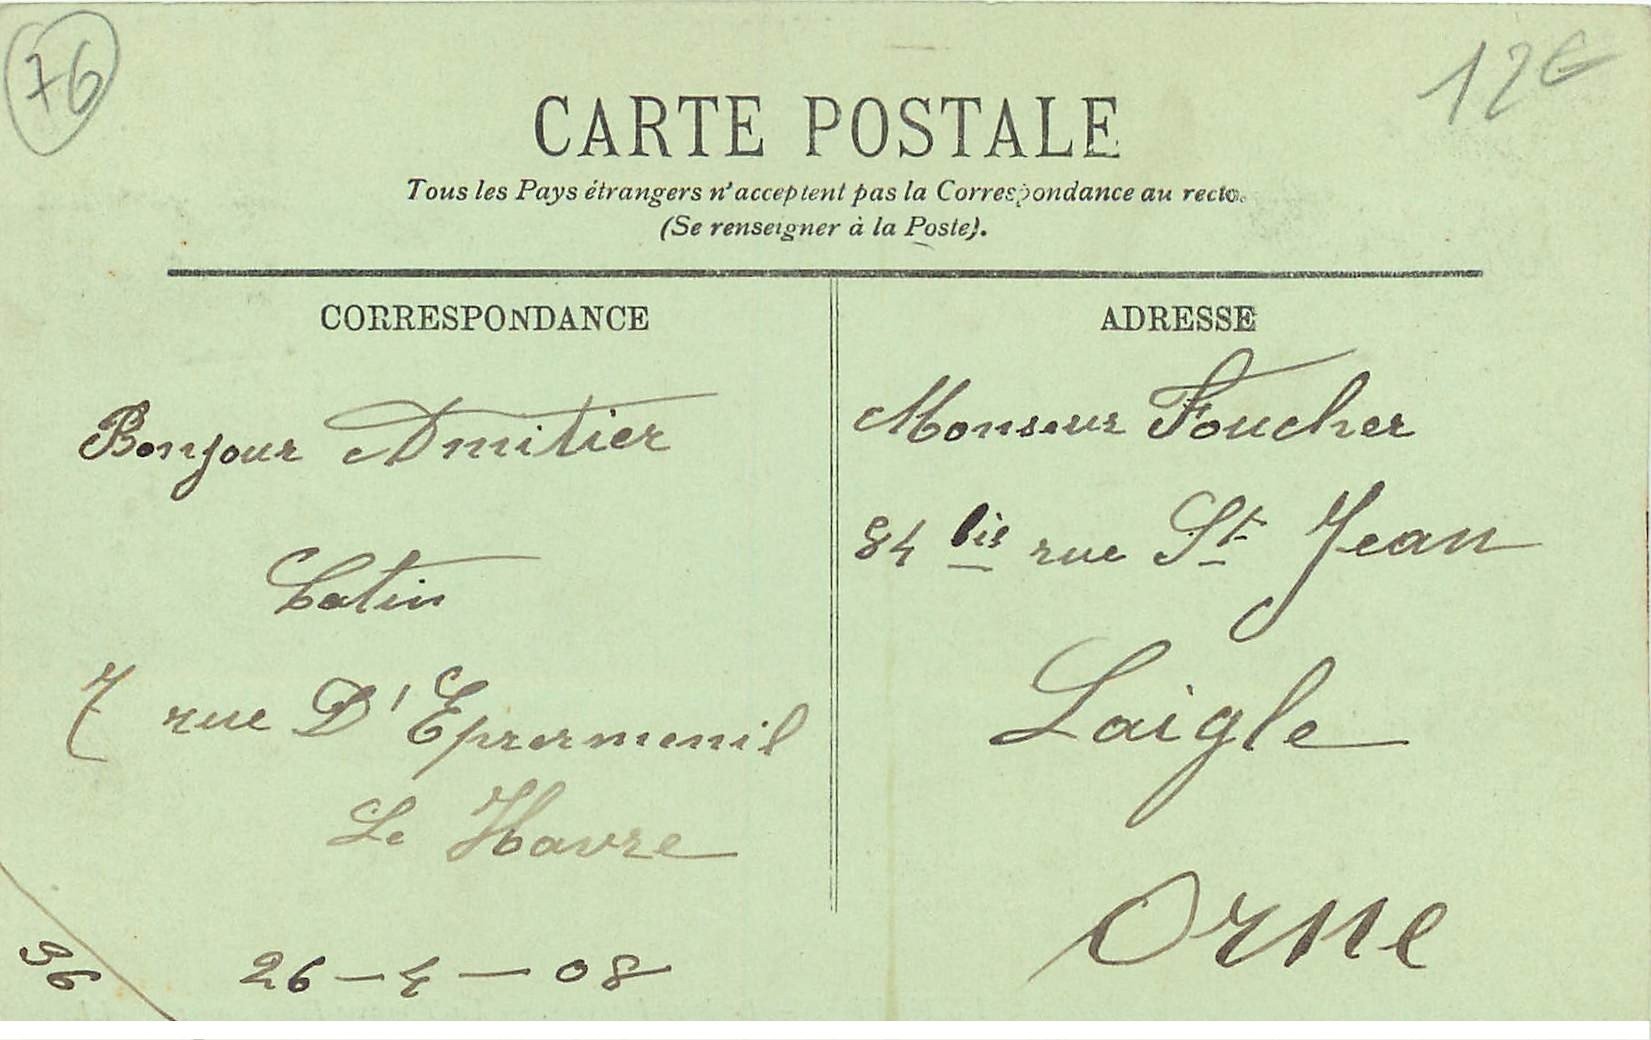 76
12€
CARTE POSTALE
Tous les Pays étrangers n'acceptent pas la Correspondance au recto.
(Se renseigner à la Poste).
CORRESPONDANCE
Bonjour Amitier
7 rue D'Eprermenil
Le Havre
26-4-08
36
ADRESSE
Monsieur Foucher
84 bis rue St Jean
Laigle
Orne